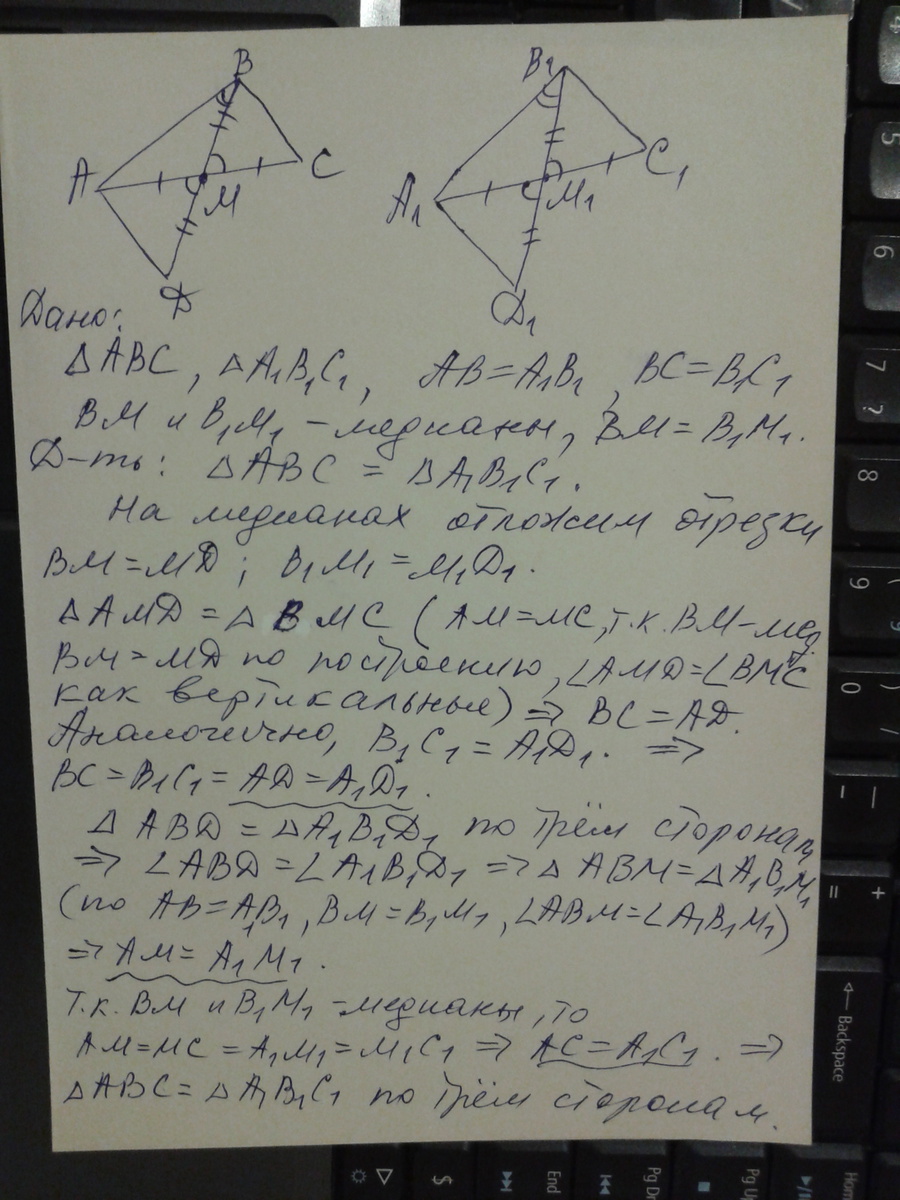 B
A
C
M
D
B₁
A₁
C₁
M₁
D₁
Дано:
△ABC, △A₁B₁C₁, AB=A₁B₁, BC=B₁C₁
BM и B₁M₁ – медианы, BM=B₁M₁.
Д-ть: △ABC = △A₁B₁C₁.
На медианах отложим отрезки
BM=MD; B₁M₁=M₁D₁.
△AMD = △BMC (AM=MC, т.к. BM–мед,
BM=MD по построению, ∠AMD=∠BMC
как вертикальные) ⇒ BC=AD.
Аналогично, B₁C₁=A₁D₁. ⇒
BC=B₁C₁=AD=A₁D₁.
△ABD=△A₁B₁D₁ по трём сторонам
⇒ ∠ABD=∠A₁B₁D₁ ⇒ △ABM=△A₁B₁M₁
(по AB=A₁B₁, BM=B₁M₁, ∠ABM=∠A₁B₁M₁)
⇒ AM=A₁M₁.
Т.к. BM и B₁M₁ –медианы, то
AM=MC=A₁M₁=M₁C₁ ⇒ AC=A₁C₁. ⇒
△ABC=△A₁B₁C₁ по трём сторонам.
4
5
6
7
?
8
9
(
0
)
-
—
=
+
← Backspace
$
End
Home